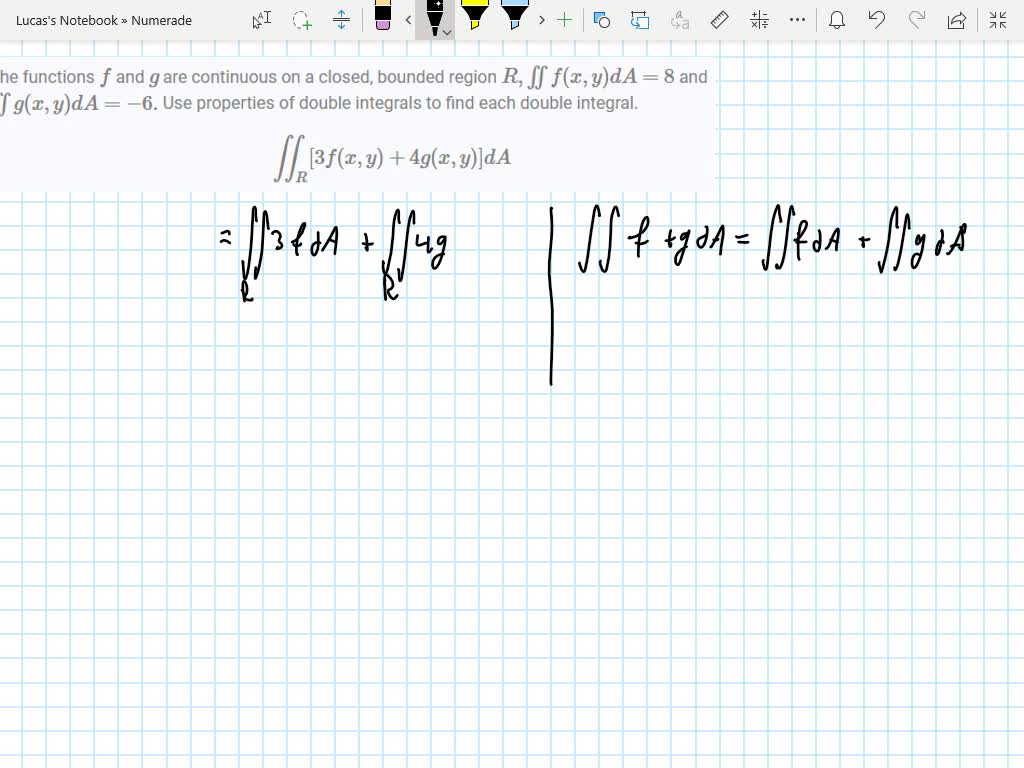 Lucas's Notebook » Numerade
he functions f and g are continuous on a closed, bounded region R, ∬ f(x, y)dA = 8 and
∬ g(x, y)dA = −6. Use properties of double integrals to find each double integral.
∬_R [3f(x, y) + 4g(x, y)]dA
= ∬_R 3 f dA + ∬_R 4g
∬ f + g dA = ∬ f dA + ∬ g dA